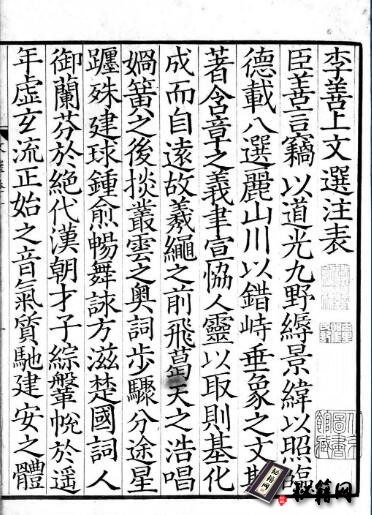 李善上文選注表
臣善言竊以道光九野縟景緯以照臨
德載八埏麗山川以錯峙垂象之文斯
著含章之義聿宣恊人靈以取則基化
成而自遠故羲繩之前飛葛天之浩唱
媧簧之後掞叢雲之奥詞步驟分途星
躔殊建球鍾愈暢舞詠方滋楚國詞人
御蘭芬於絕代漢朝才子綜鞶帨於遥
年虛玄流正始之音氣質馳建安之體
秘籍网